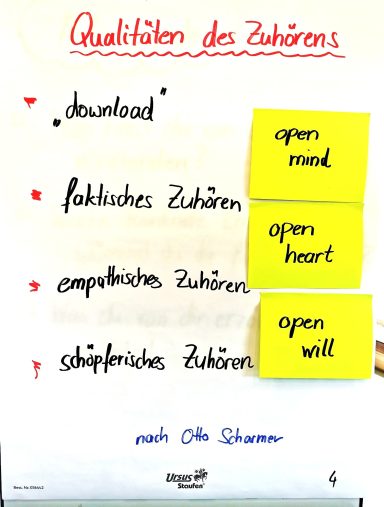 Qualitäten des Zuhörens
„download"
open
mind
faktisches Zuhören
open
heart
empathisches Zuhören
open
will
schöpferisches Zuhören
nach Otto Scharmer
Ursus
Staufen
4